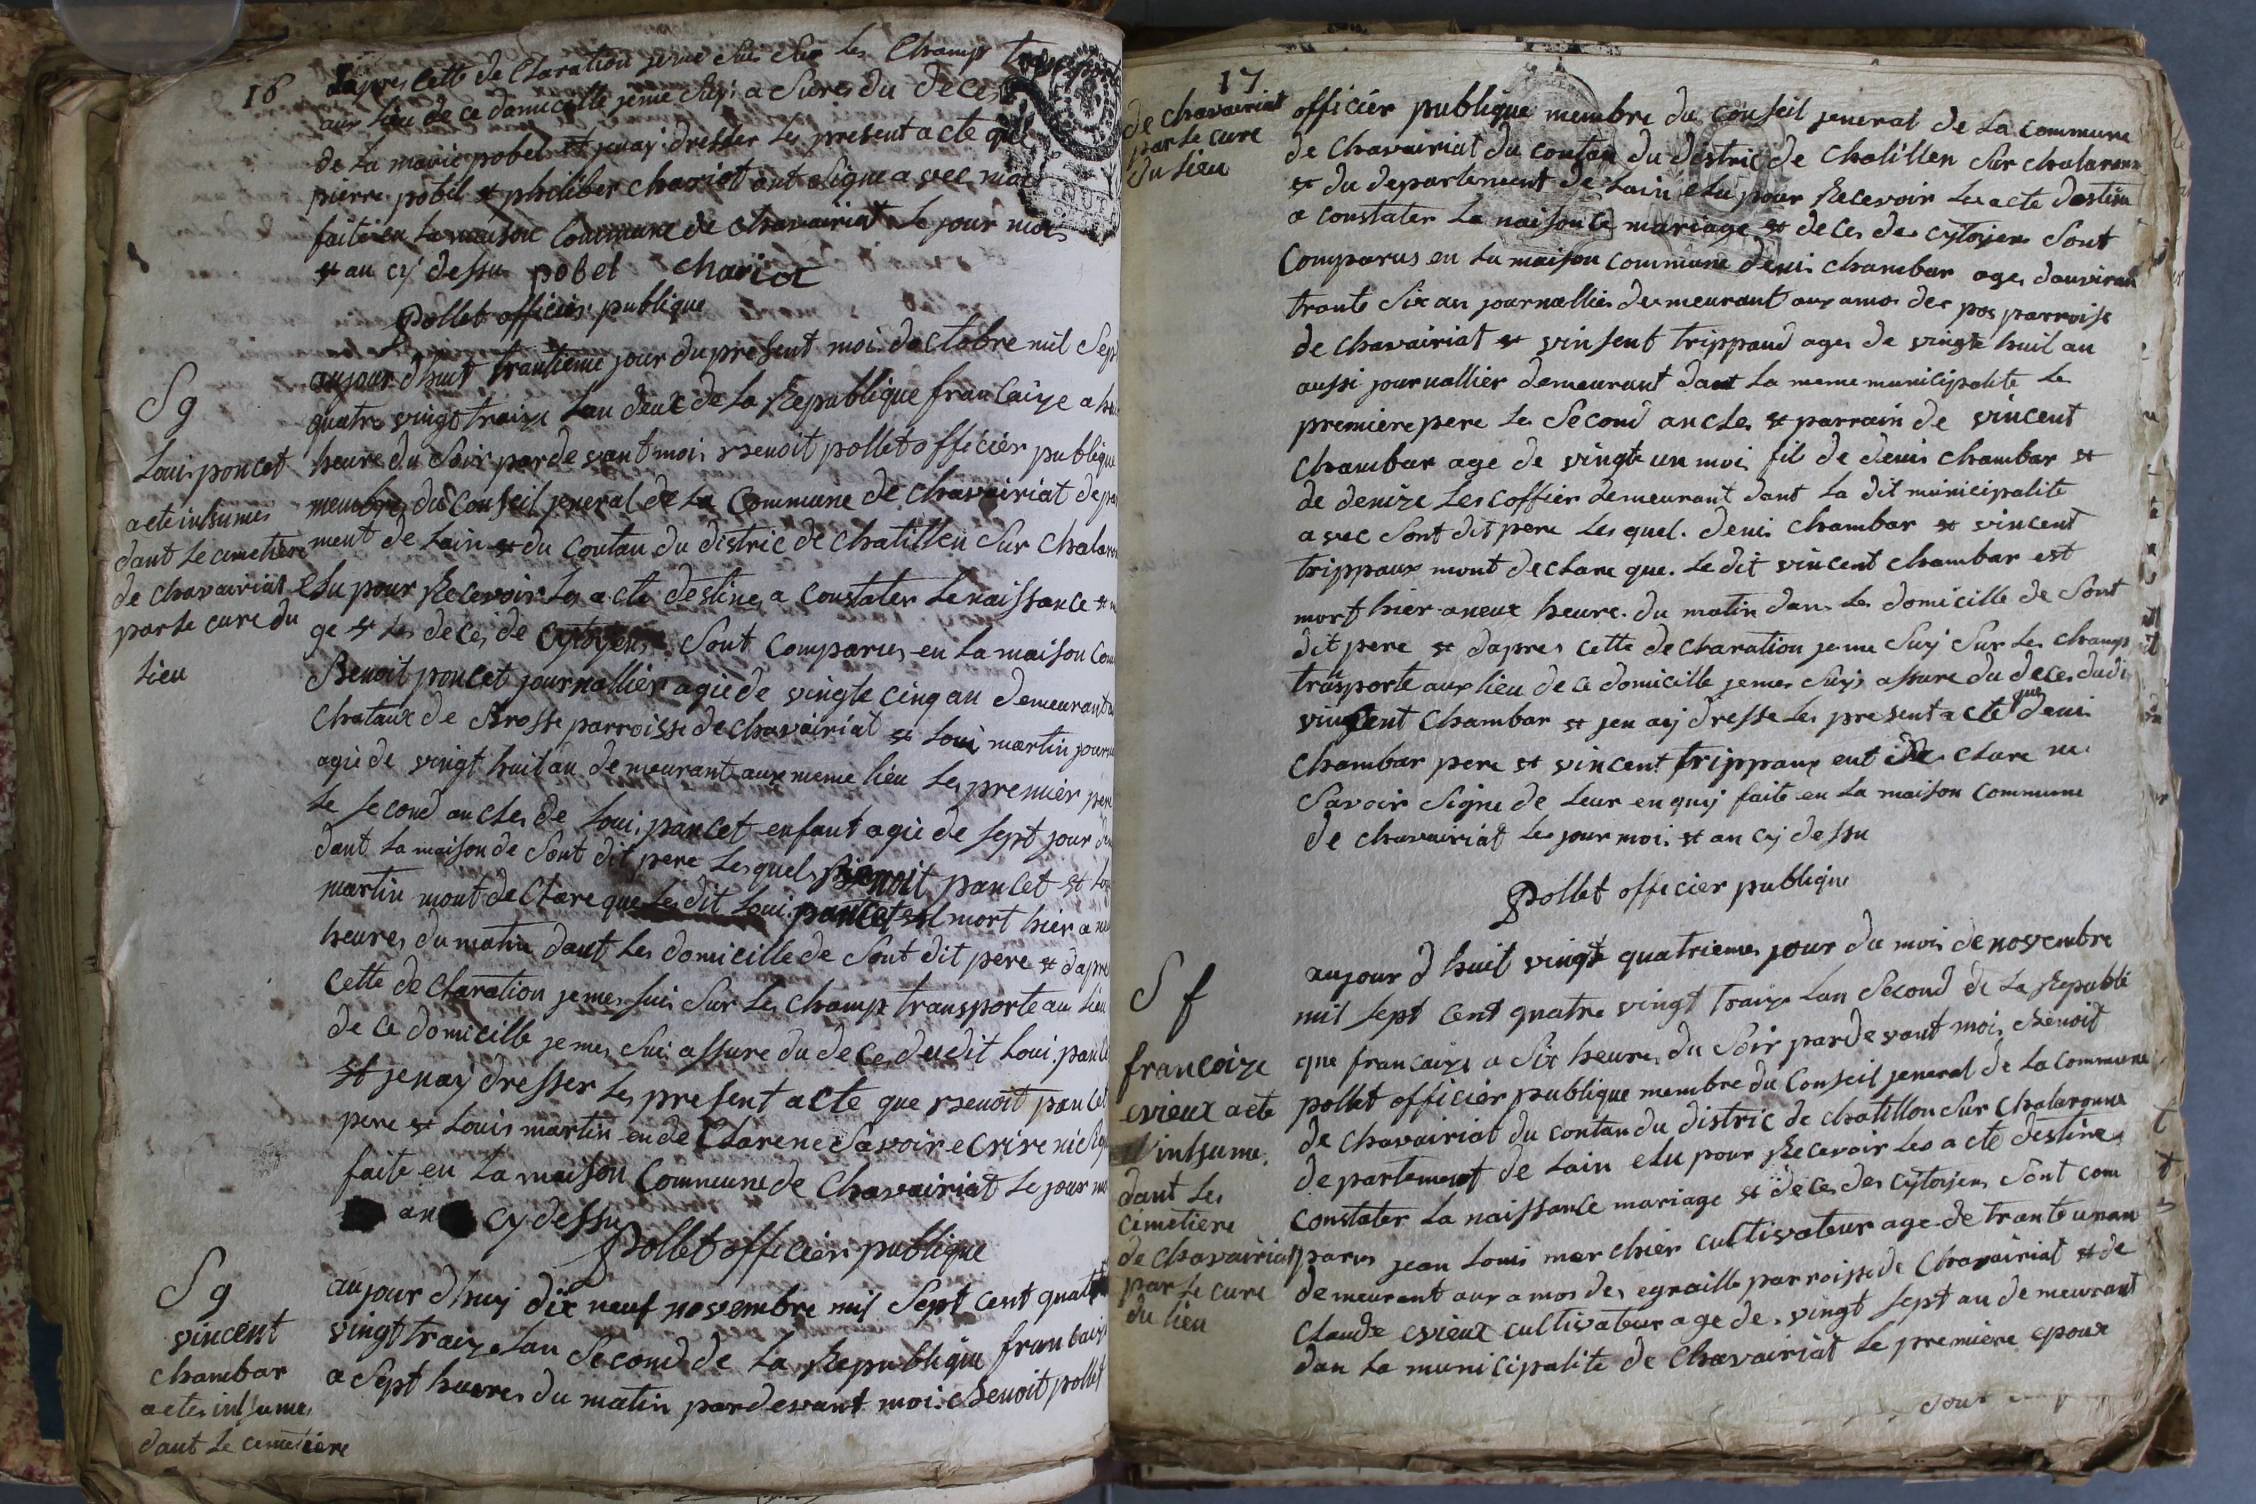 16
dapres cette de Claration jeme suis sur les Champ transporte
aux lieu de ce domicille jeme suy asure du deces
de La marie pobel et jenay dresser Les present acte que
pierre pobel et philiber chariot ont signe avec moi
faite en La maison Commune de chavairiat Le jour moi
et an cy dessu pobel chariot
Pollet officier publique
Sg
Loui poncet
acte inhumer
dant Le cimetiere
de chavairiat
par Le cure du
Lieu
aujour d huit trantieme jour du present moi doctobre mil Sept
quatre vingt traize Lan deux de La Republique francaize a
heure du Soir par de vant moi Benoit pollet officier publique
membre du Conseil jeneral de La Commune de chavairiat depar
ment de Lain et du Contau du distric de chatillen Sur chalaron
elu pour Recevoir Les acte destines a constater Le naissance
ge et Les deces de Cytoyens Sont Comparus en La maison Com
Benoit poncet journallier agie de vingte cinq an demeurant
chataux de Brosse parroisse de chavairiat et Loui martin journ
agie de vingt huit an demeurant aux meme lieu Les premier pere
Le second ancles de Loui poncet enfant agie de sept jour
dant La maison de Sont dit pere Les quels Benoit poncet et
martin mont de Clare que Les dit Loui poncet est mort hier a
heures du matin dant Les domicille de Sont dit pere et dapre
cette de Claration jemes suis Sur Les Champ transporte au Lieu
de ce domicille jemes suis assure du deces du dit Loui
et jenay dresser Les present acte que Benoit poncet
pere et Louis martin en de Clare ne Savoir ecrire ni
faite en La maison Commune de Chavairiat Le jour
an cy dessu
Pollet officier publique
Sg
vincent
chambar
acte inhumer
dant Le cimetiere
aujour dhuy dix neuf novembre mil Sept cent quatre
vingt traize Lan Second de La Republique francaize
a Sept heures du matin par devant moi Benoit pollet
17
de chavairiat
par Le cure
du Lieu
officier publique membre du Conseil jeneral de La commune
de chavairiat du contau du distric de chatillen Sur chalaronne
et du departement de Lain elu pour Recevoir Les acte destine
a constater La naisonce mariage et deces des cytoyens Sont
Comparus en La maison commune deni chambar ages danviran
trante Six an journallier demeurant aux amos des pos parroise
de chavairiat et vinsent trippaud ages de vingte huit an
aussi journallier demeurant dant La meme municipalite Le
premiere pere Le Second ancles et parrain de vincent
Chambar age de vingte un moi fil de deni chambar et
de denize Lescoffier demeurant dant La dit municipalite
avec Sont dit pere Les quel deni chambar et vincent
trippaux mont declare que Le dit vincent chambar est
mort hier a neux heure du matin dans Les domicille de Sont
dit pere et dapres cette de charation jeme Suy Sur Les champ
trasporte aux lieu de ce domicille jemes Suis assure du deces dudi
vincent Chambar et jen aij dresse Les present acte que deni
Chambar pere et vincent trippaux ent de clare ne
Savoir Signe de Leur enquij faite en La maison commune
de chavairiat Les jour moi et an cy dessu
Pollet officier publique
Sf
francoize
evieux acte
inhume
dant Les
cimetiere
de chavairiat
par Le cure
du lieu
aujour d huit vingt quatrieme jour du moi de novembre
mil sept cent quatre vingt traize Lan Second de La Republi
que francaize a Six heures du Soir par devant moi Benoit
pollet officier publique membre du Conseil jeneral de La commune
de chavairiat du contau du distric de chatillon Sur chalaronne
departement de Lain elu pour Recevoir Les acte destines
Constater La naissance mariage et deces des cytoyens Sont com
parus jean Loui marchier cultivateur age de trante un an
demeurant aux amos des egraille parroisse de Chavairiat et de
Claude evieux cultivateur age de vingt sept an demeurant
dan La municipalite de Chavairiat Le premiere epoux